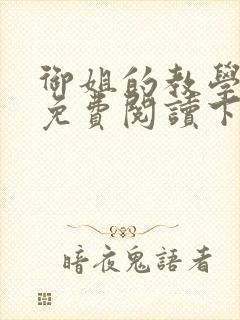 御姐的教學
免費閱讀下
暗夜鬼語者